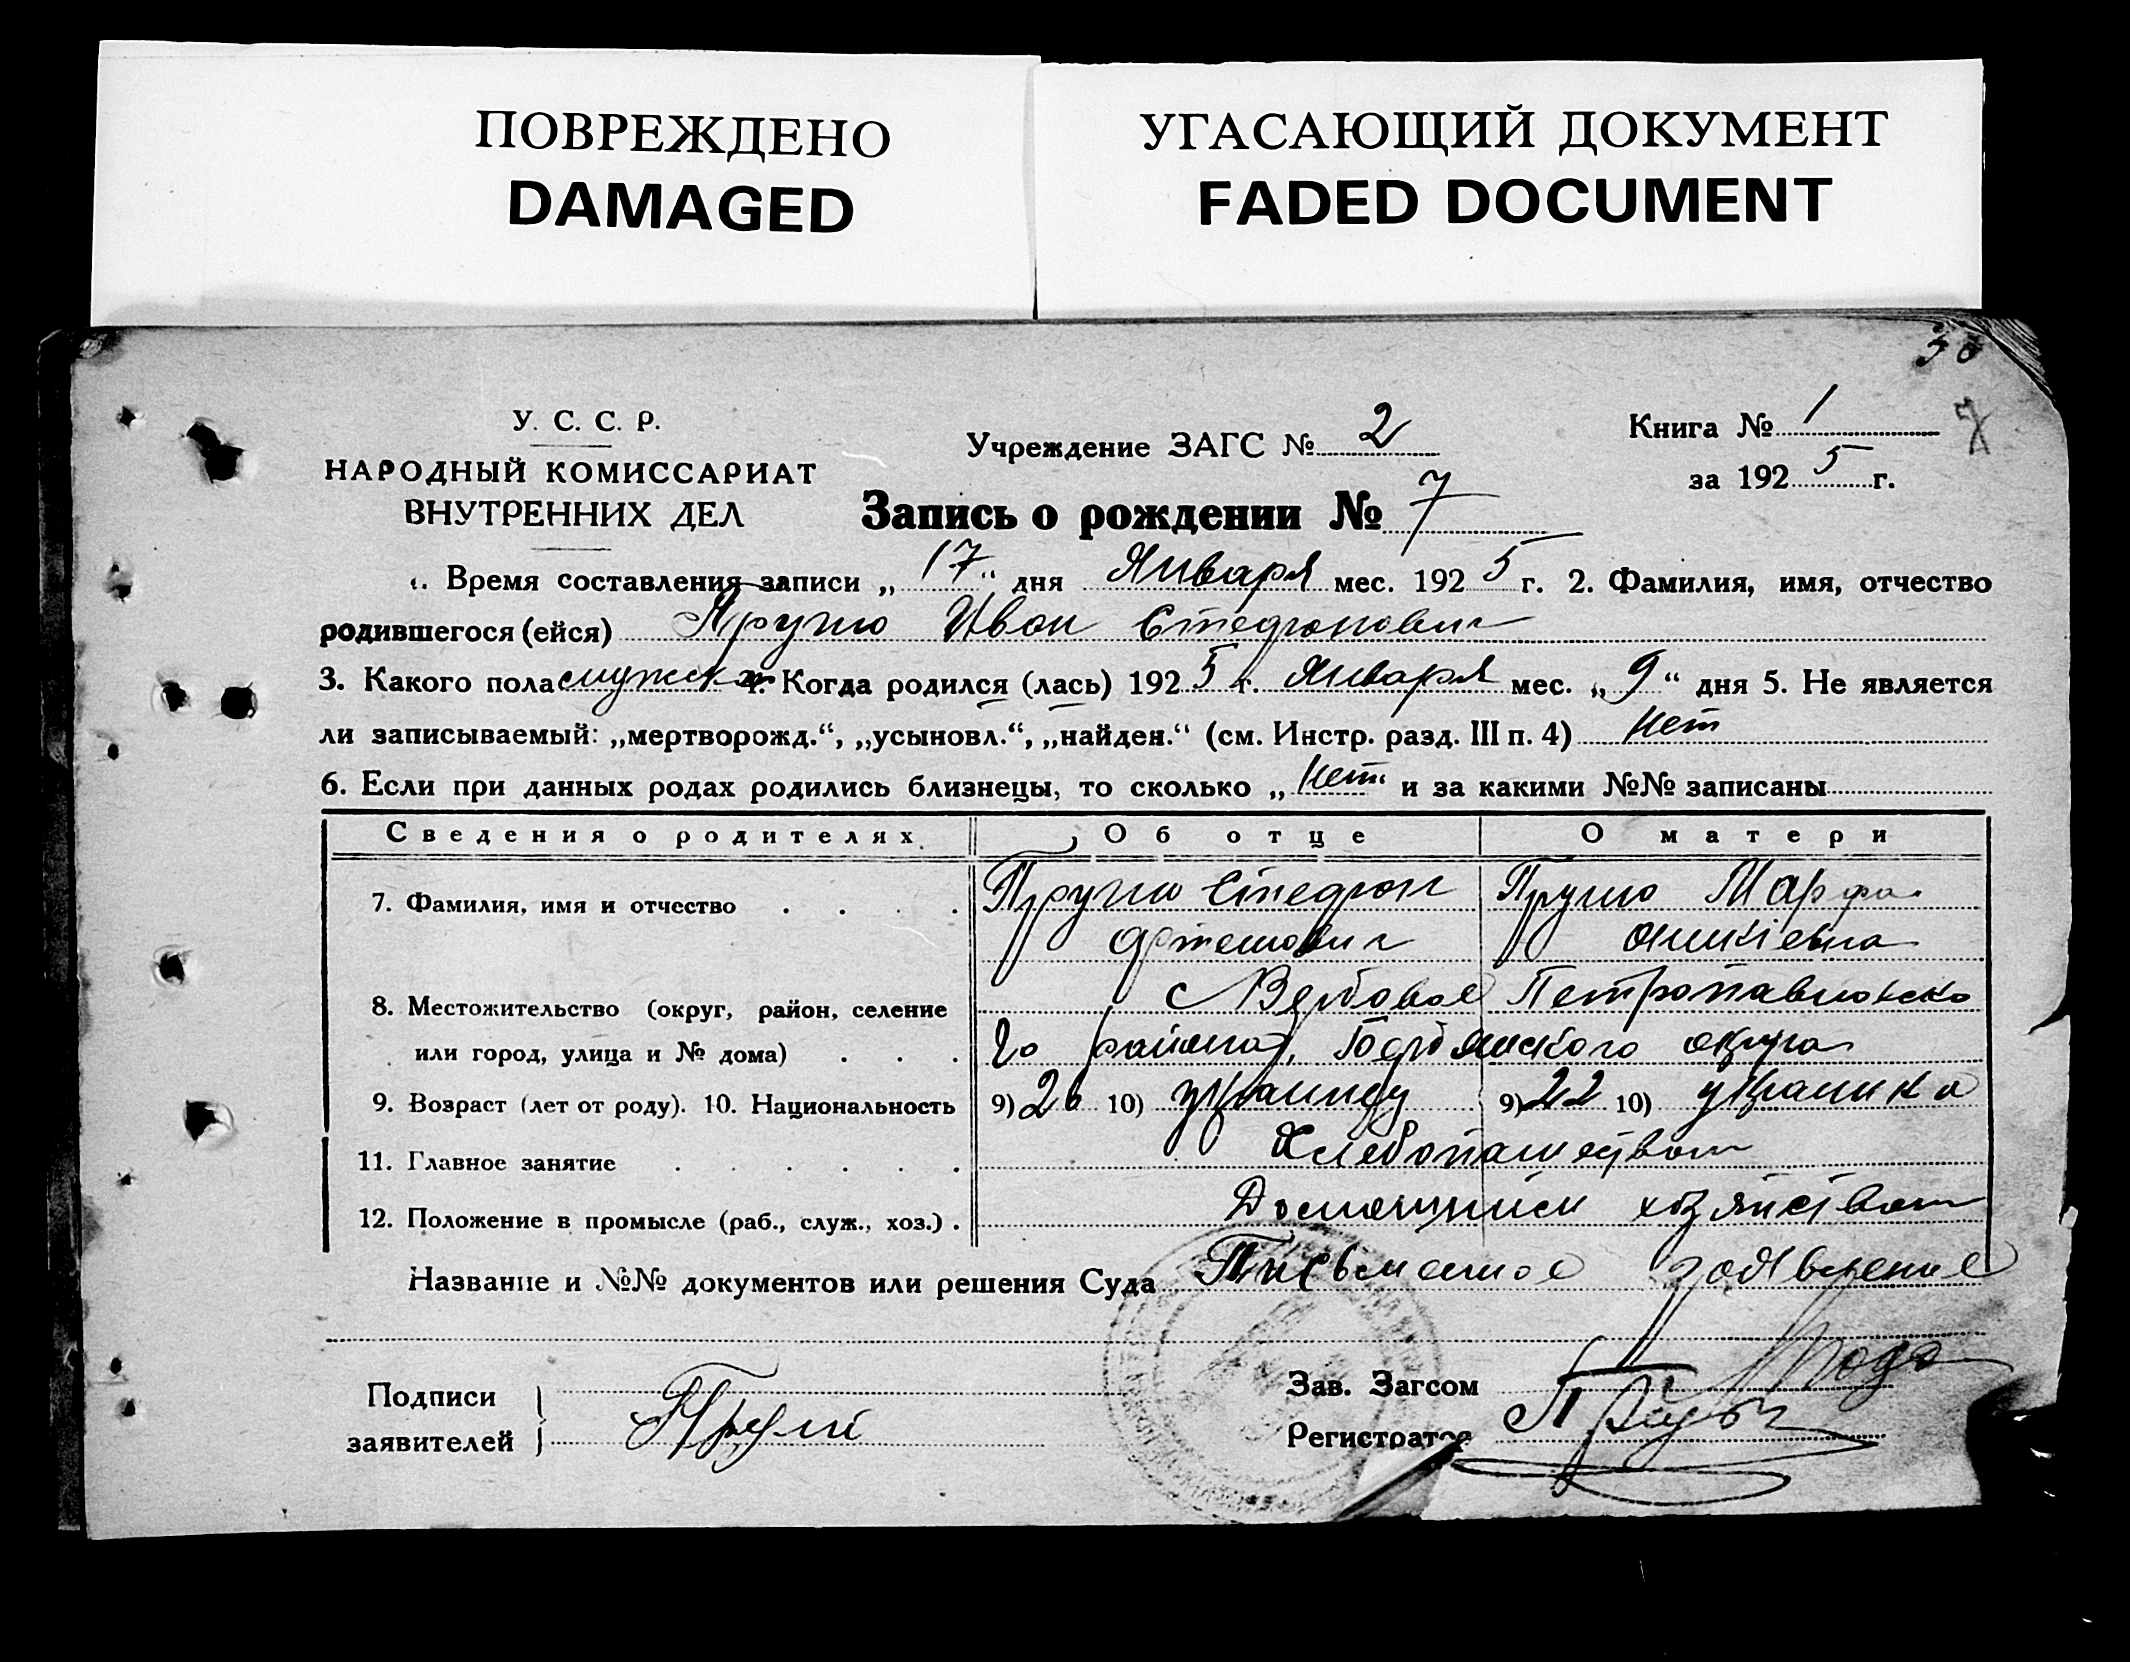 ПОВРЕЖДЕНО
DAMAGED
УГАСАЮЩИЙ ДОКУМЕНТ
FADED DOCUMENT
30
7
У. С. С. Р.
НАРОДНЫЙ КОМИССАРИАТ
ВНУТРЕННИХ ДЕЛ
Учреждение ЗАГС № 2
Книга № 1
за 1925 г.
Запись о рождении № 7
1. Время составления записи „17“ дня Января мес. 1925 г. 2. Фамилия, имя, отчество
родившегося (ейся) Иван
3. Какого пола мужск 4. Когда родился (лась) 1925 г. Января мес. „9“ дня 5. Не является
ли записываемый: „мертворожд.“, „усыновл.“, „найден.“ (см. Инстр. разд. III п. 4) нет
6. Если при данных родах родились близнецы, то сколько „нет“ и за какими №№ записаны
Сведения о родителях. Об отце О матери
7. Фамилия, имя и отчество Марфа
Артемович
8. Местожительство (округ, район, селение с Вербовое Петропавловско
или город, улица и № дома) го района, Бердянского округа
9. Возраст (лет от роду). 10. Национальность 9) 26 10) 9) 22 10) украинка
11. Главное занятие Хлебопашеством
12. Положение в промысле (раб., служ., хоз.) Домашним хозяйством
Название и №№ документов или решения Суда Письменное заявление
Подписи
заявителей
Зав. Загсом
Регистратор